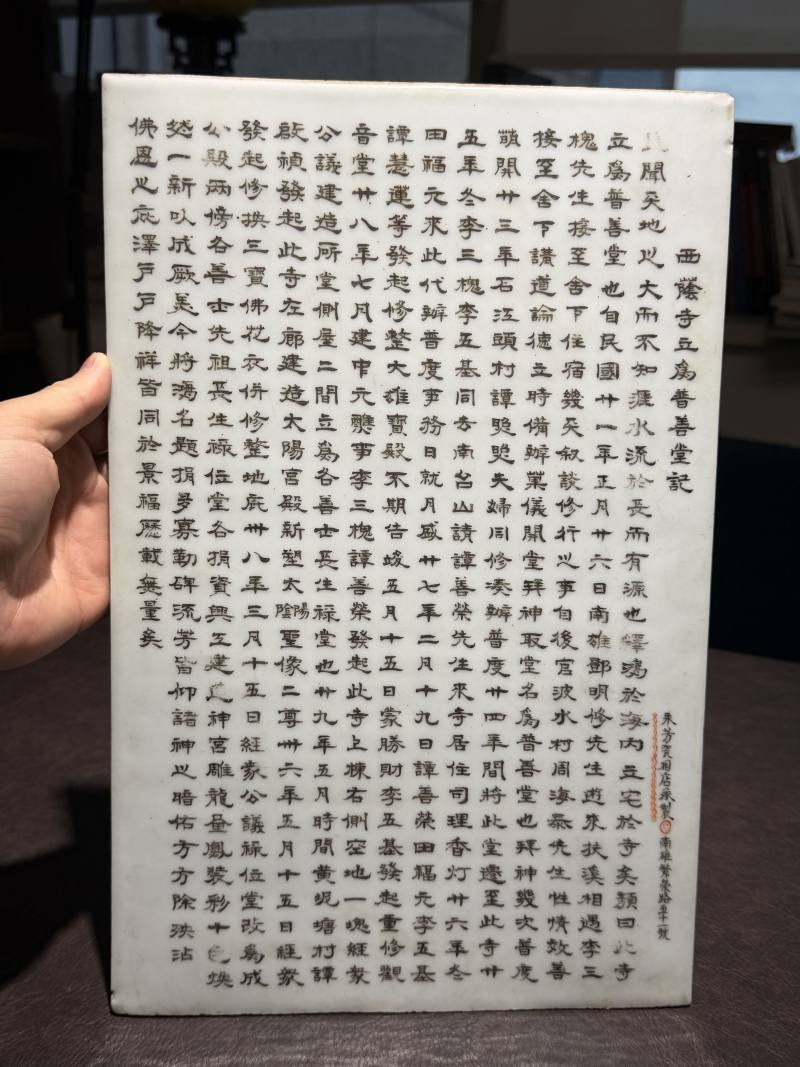 西蔭寺立為普善堂記
聞天地之大而不知涯水流於長而有源也釋鴻於海內立宅於寺矣額曰此寺
立為普善堂也自民國廿一年正月廿六日南雄鄧明修先生遊來扶溪相遇李三
槐先生接至舍下住宿幾天叙談修行之事自後官波水村周海泰先生性情效善
接至舍下講道論德立時備辦菓儀開堂拜神取堂名為普善堂也拜神幾次普度
萌開廿三年石江頭村譚晚晚夫婦同修湊辦普度廿四年間將此堂遷至此寺廿
五年冬李三槐李五基同去南台山請譚善榮先生來寺居住司理香灯廿六年冬
田福元來此代辦普度事務日就月盛廿七年二月十九日譚善榮田福元李五基
譚慧蓮等發起修整大雄寶殿不期告竣五月十五日蒙勝財李五基發起重修觀
音堂廿八年七月建中元醮事李三槐譚善榮發起此寺上棟右側空地一塊經衆
公議建造所堂側屋二間立為各善士長生祿堂也廿九年五月時間黃坭塘村譚
啟禎發起此寺左廊建造太陽宮殿新塑太陰陽聖像二尊卅六年五月十五日經衆
發起修換三寶佛花衣併修整地底卅八年三月十五日經蒙公議祿位堂改為成
公殿兩傍各善士先祖長生祿位堂各捐資興工建造神宮雕龍畫鳳裝彩十色煥
然一新以成厥美今將鴻名題捐多寡勒碑流芳皆仰諸神之暗佑方方除泱沾
佛恩之庇澤戸戸降祥皆同於景福歷載無量矣
来芳瓷相店承製
南雄繁榮路五十一號